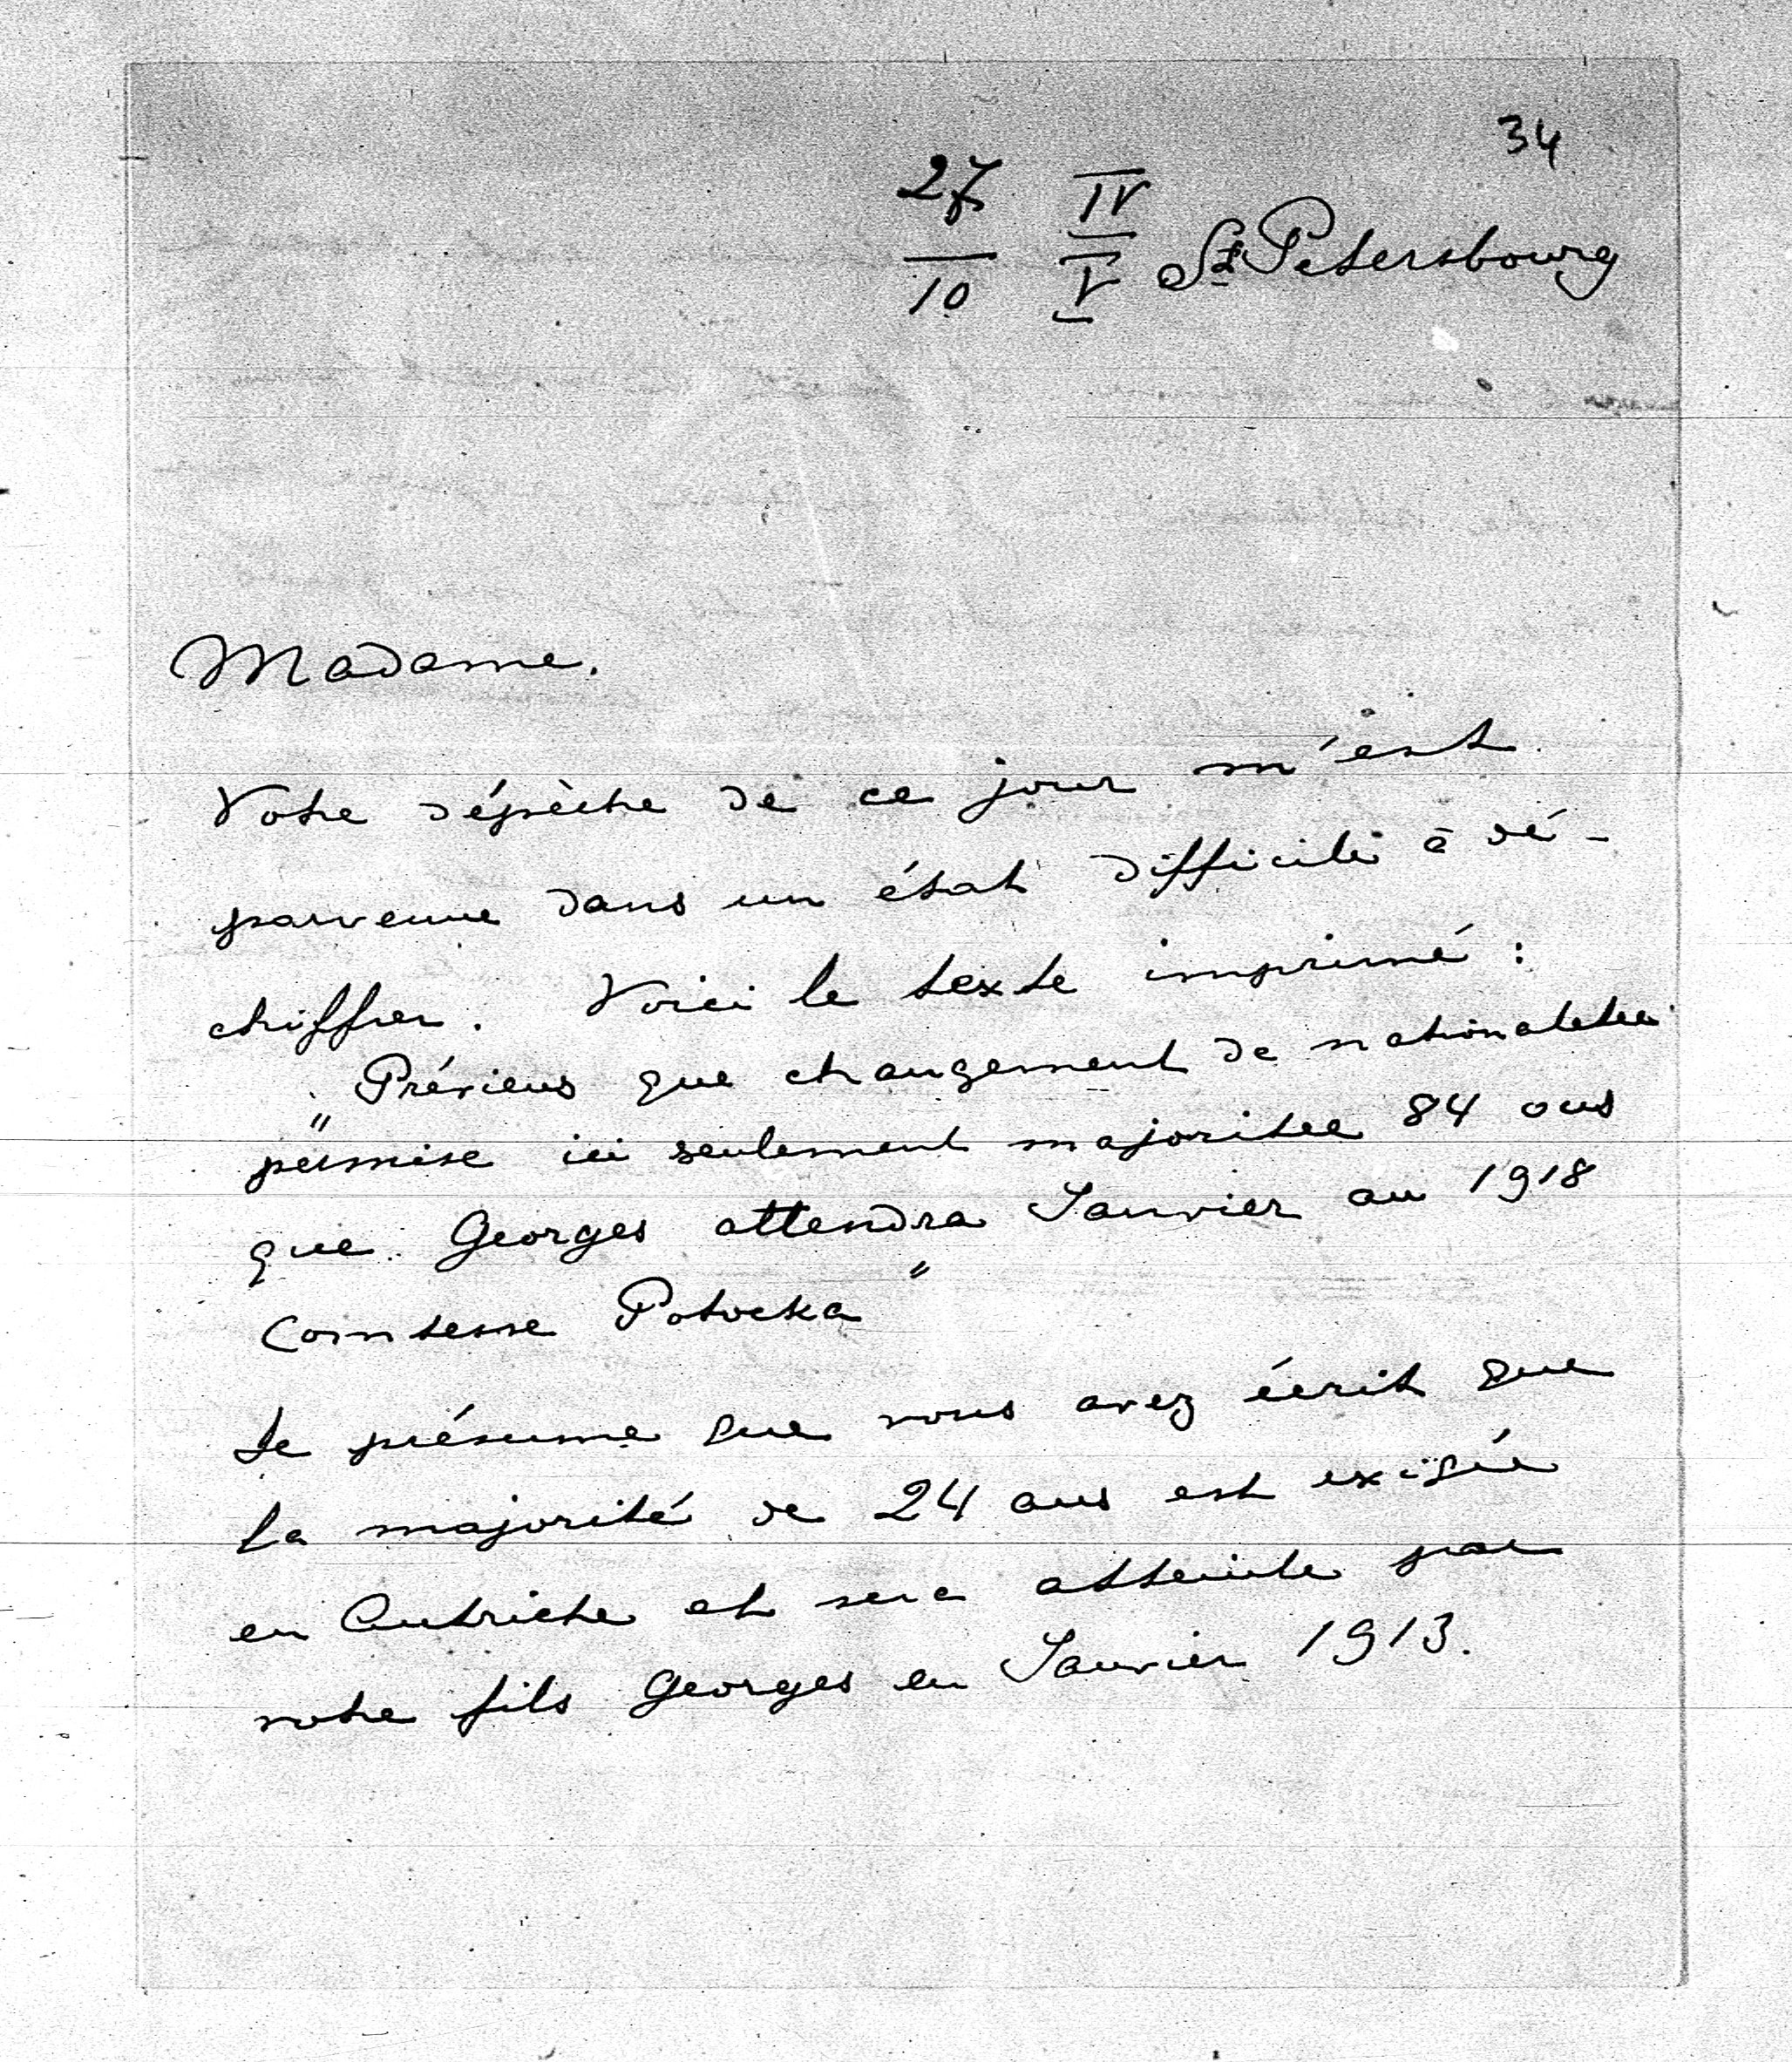 34
27 IV
10 V St Petersbourg
Madame.
Votre dépèche de ce jour m'est
parvenue dans un état difficile à dé-
chiffrer. Voici le texte imprimé :
"Préviens que changement de nationaletee
permise ici seulement majoritee 84 ous
que Georges attendra Janvier au 1918
Comtesse Potocka"
Je présume que vous avez écrit que
la majorité de 24 ans est exigée
en Autriche et sera atteinte par
votre fils Georges en Janvier 1913.